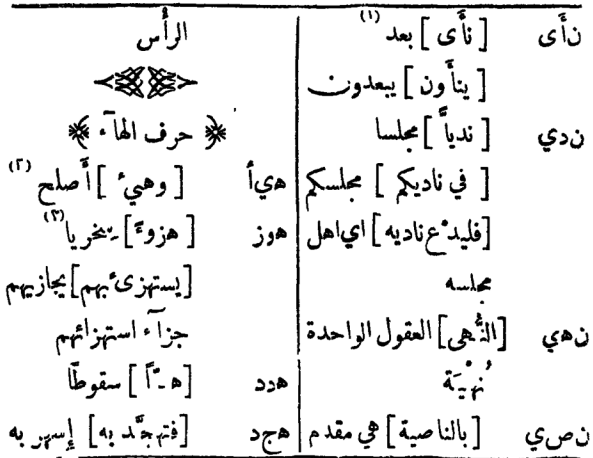 ن‌أ‌ى [نَأَى] بعد (١)
[ينأَون] يبعدون
ن‌دي [نديًّا] مجلسا
[في ناديكم] مجلسكم
[فليدْع ناديه] اي اهل
مجلسه
ن‌هي [النُّهى] العقول الواحدة
نُهْيَة
ن‌صي [بالناصية] هي مقدم
الرأس
حرف الهآء
هيأ [وهيئ] أصلح (٢)
هوز [هزوءً] سخريا (٣)
[يستهزئ بهم] يجازيهم
جزآء استهزائهم
هدد [هدًّا] سقوطًا
هجد [فتهجَّد به] إسهر به